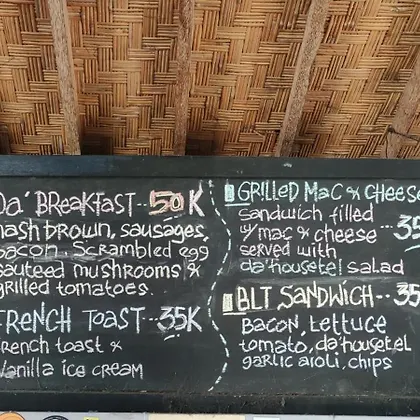 Da' BREAKFAST -- 50K
hash brown, sausages,
bacon, Scrambled egg
sauteed mushrooms &
grilled tomatoes.
FRENCH TOAST -- 35K
French toast &
Vanilla ice cream
GRILLED MAC & CHEESE
Sandwich filled
w/ mac & cheese -- 35
served with
da'housetel salad
BLT SANDWICH -- 35
BACON, LETTUCE
tomato, da'housetel
garlic aioli, chips